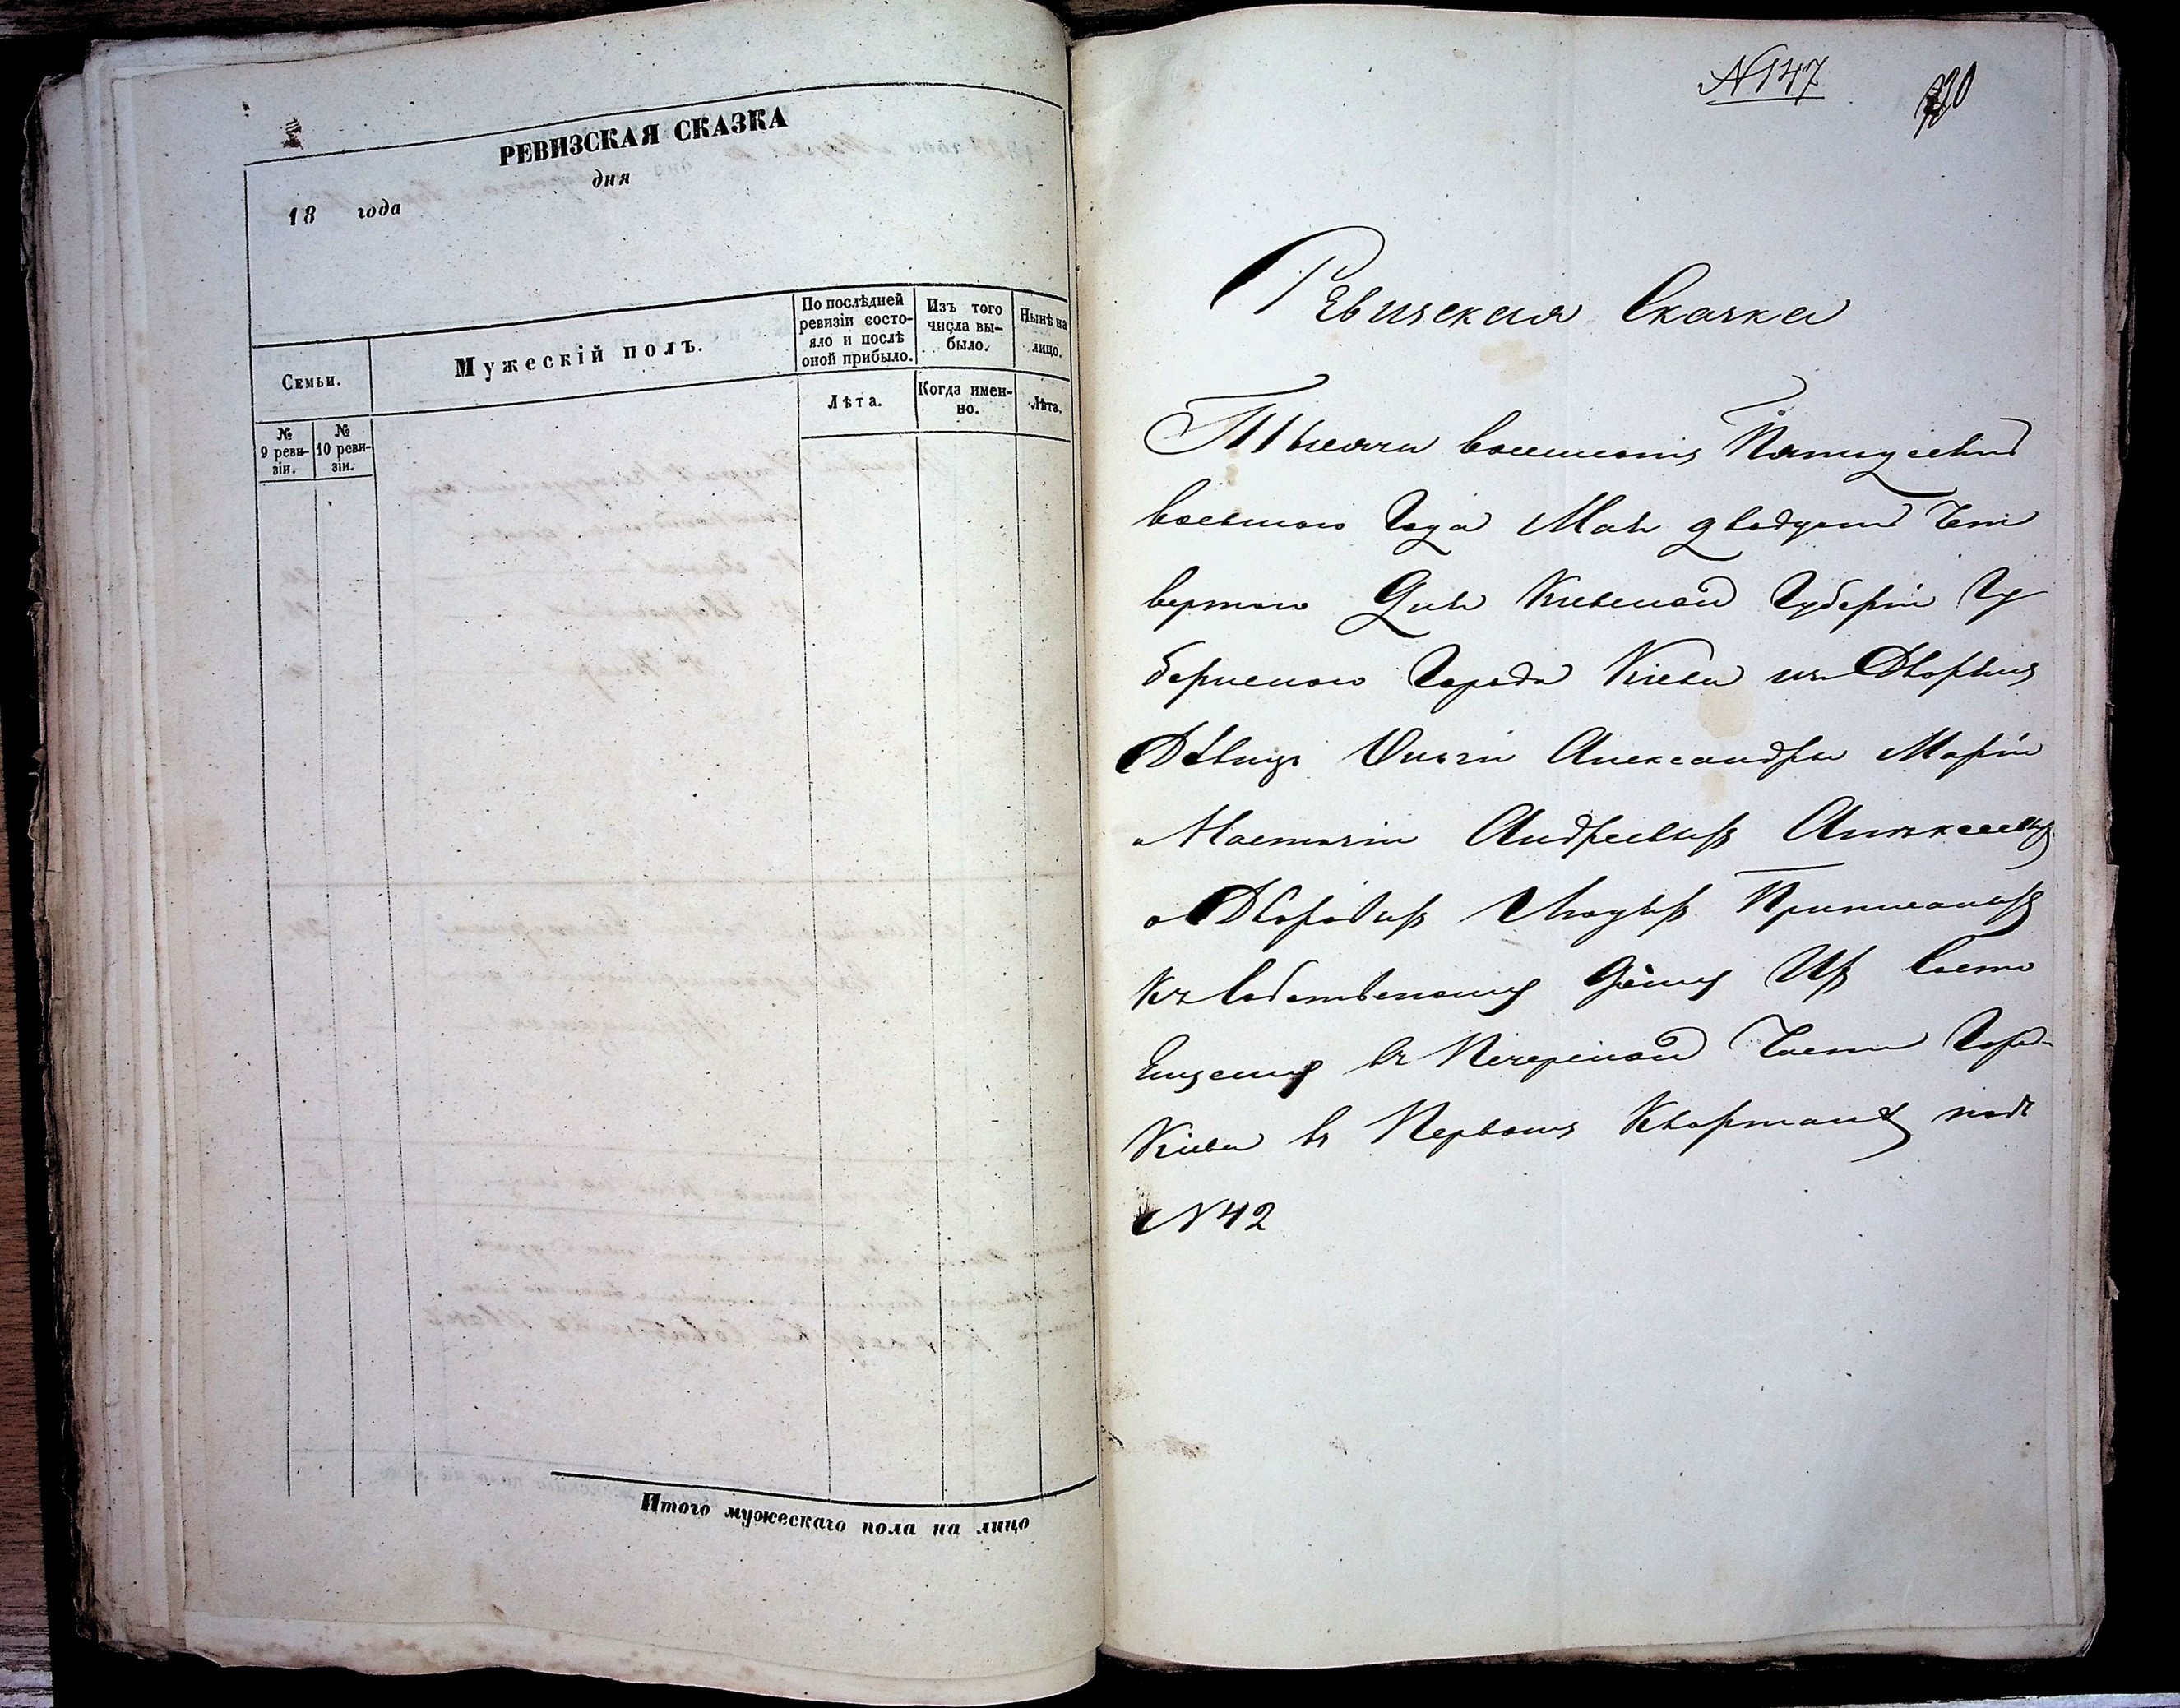 РЕВИЗСКАЯ СКАЗКА
дня
18 года
Семьи.
Мужескій полъ.
По послѣдней
ревизіи состо-
яло и послѣ
оной прибыло.
Изъ того
числа вы-
было.
Нынѣ на
лицо.
Лѣта.
Когда имен-
но.
Лѣта.
№
9 реви-
зіи.
№
10 реви-
зіи.
Итого мужескаго пола на лицо
N 147
Ревизская Сказка
Тысячи восемьсотъ Пятидесятъ
восьмого Года Мая двадцать Чет
вертого Дня Киевской Губерніи Гу
бернского Города Кіева изъ Дворянъ
Дѣвицъ Ольги Александры Маріи
и Настасіи Андреевыхъ Алексеевыхъ
о Дворовыхъ Людяхъ Приписаныхъ
Къ Собственному Дому Ихъ Состо
Ящему въ Печерской Части Гор-
Кіева въ Первомъ Кварталѣ подъ
N 42